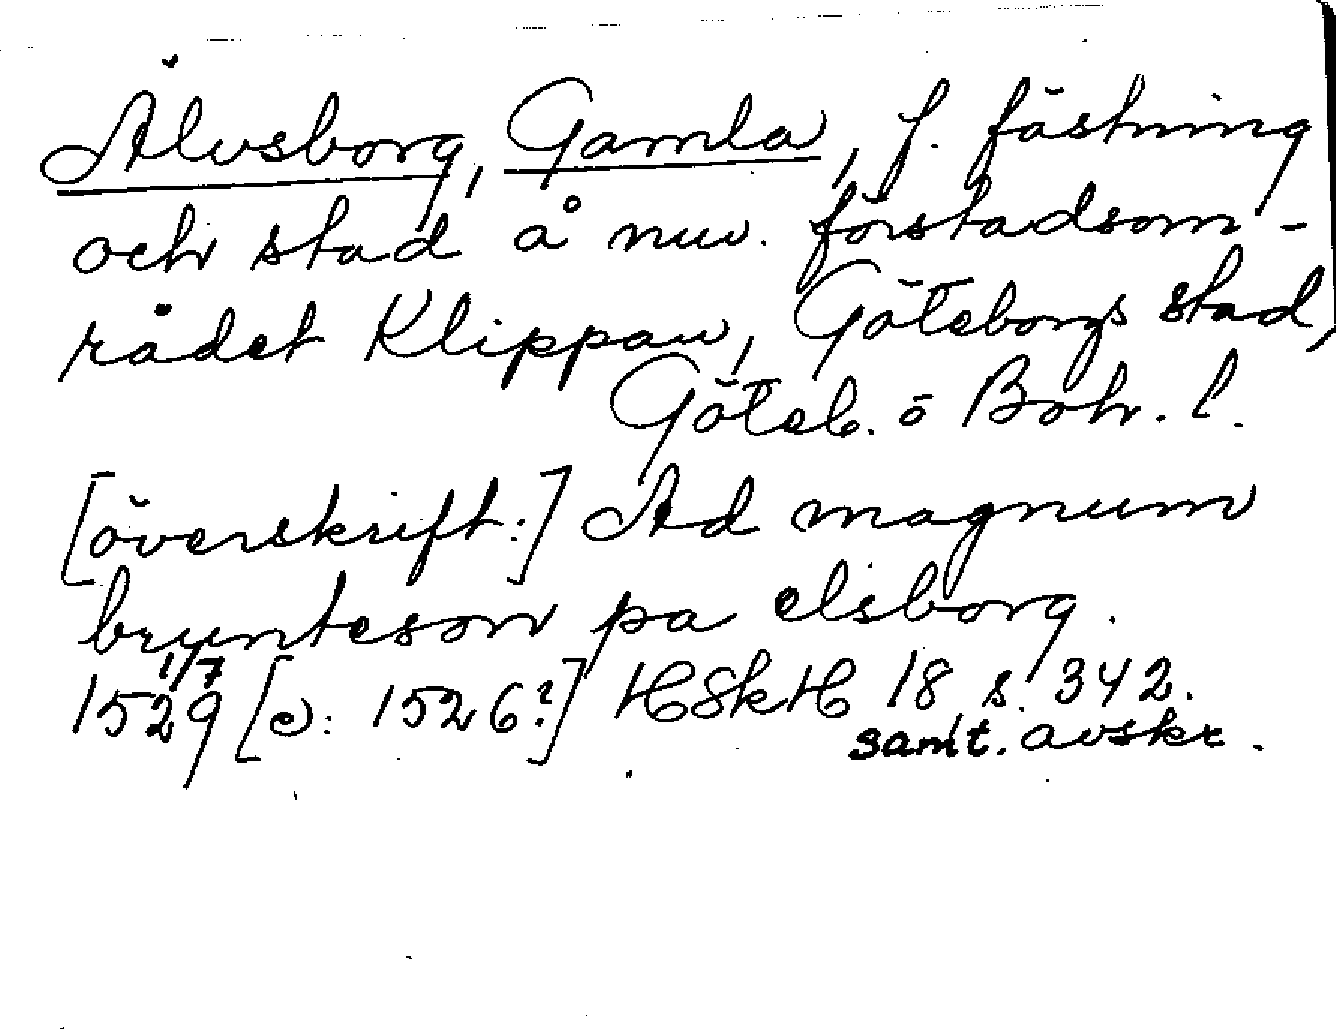 Älvsborg, Gamla, f. fästning
och stad å nuv. förstadsom-
rådet Klippan, Göteborgs stad,
Göteb. o Boh. l.
[överskrift:] Ad magnum
brynteson pa elsborg.
1/7
1529 [ɔ: 1526?] HSkH 18 s. 342.
samt. avskr.